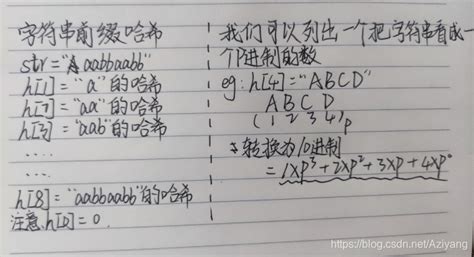 字符串前缀哈希
str="Aaabbaabb"
h[1]="a"的哈希
h[2]="aa"的哈希
h[3]="aab"的哈希
....
....
h[8]="aabbaabb"的哈希
注意.h[0]=0.
我们可以列出一个把字符串看成一
个P进制的数
eg:h[4]="ABCD"
A B C D
(1 2 3 4)p
转换为10进制
=1XP³+2XP²+3XP+4XP⁰
https://blog.csdn.net/Aziyang